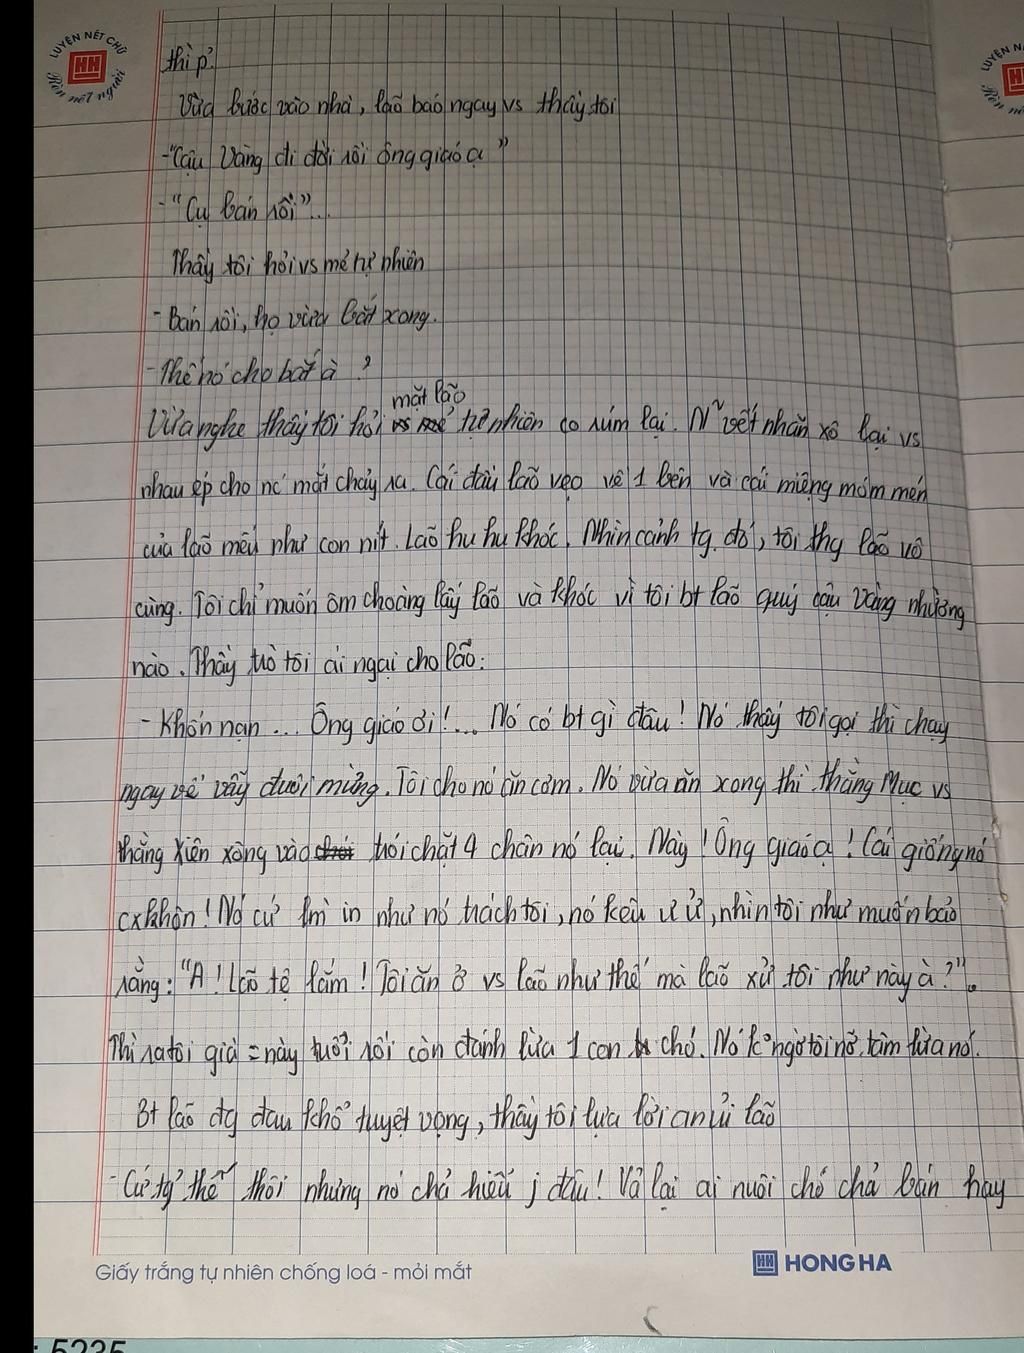 LUYỆN NÉT CHỮ
Rèn nết người
LUYỆN N
thì p?
Vừa bước vào nhà, lão báo ngay vs thầy tôi
-"Cậu Vàng đi đời rồi ông giáo ạ"
-"Cụ bán rồi"...
Thầy tôi hỏi vs mẻ tự nhiên
- Bán rồi, họ vừa bắt xong.
- Thế nó cho bắt à?
mặt lão
Vừa nghe thầy tôi hỏi tự nhiên co rúm lại. N~ vết nhăn xô lại vs
nhau ép cho nc mắt chảy ra. Cái đầu lão vẹo về 1 bên và cái miệng móm mém
của lão mếu như con nít. Lão hu hu khóc. Nhìn cảnh tg đó, tôi thg lão vô
cùng. Tôi chỉ muốn ôm choàng lấy lão và khóc vì tôi bt lão quý cậu Vàng nhường
nào. Thầy trò tôi ái ngại cho lão:
- Khốn nạn... Ông giáo ơi!... Nó có bt gì đâu! Nó thấy tôi gọi thì chạy
ngay về vẫy đuôi mừng. Tôi cho nó ăn cơm. Nó vừa ăn xong thì thằng Mục vs
thằng Xiên xông vào trói chặt 4 chân nó lại. Này! Ông giáo ạ! Cái giống nó
cx khôn! Nó cứ im in như nó trách tôi, nó kêu ư ử, nhìn tôi như muốn bảo
rằng: "A! Lão tệ lắm! Tôi ăn ở vs lão như thế mà lão xử tôi như này à?".
Thì ra tôi già = này tuổi rồi còn đánh lừa 1 con chó. Nó k ngờ tôi nỡ tâm lừa nó.
Bt lão đg đau khổ tuyệt vọng, thầy tôi lựa lời an ủi lão
- Cứ tg? thế thôi nhưng nó chả hiểu j đâu! Vả lại ai nuôi chó chả bán hay
Giấy trắng tự nhiên chống loá - mỏi mắt
HONG HA
: 5235